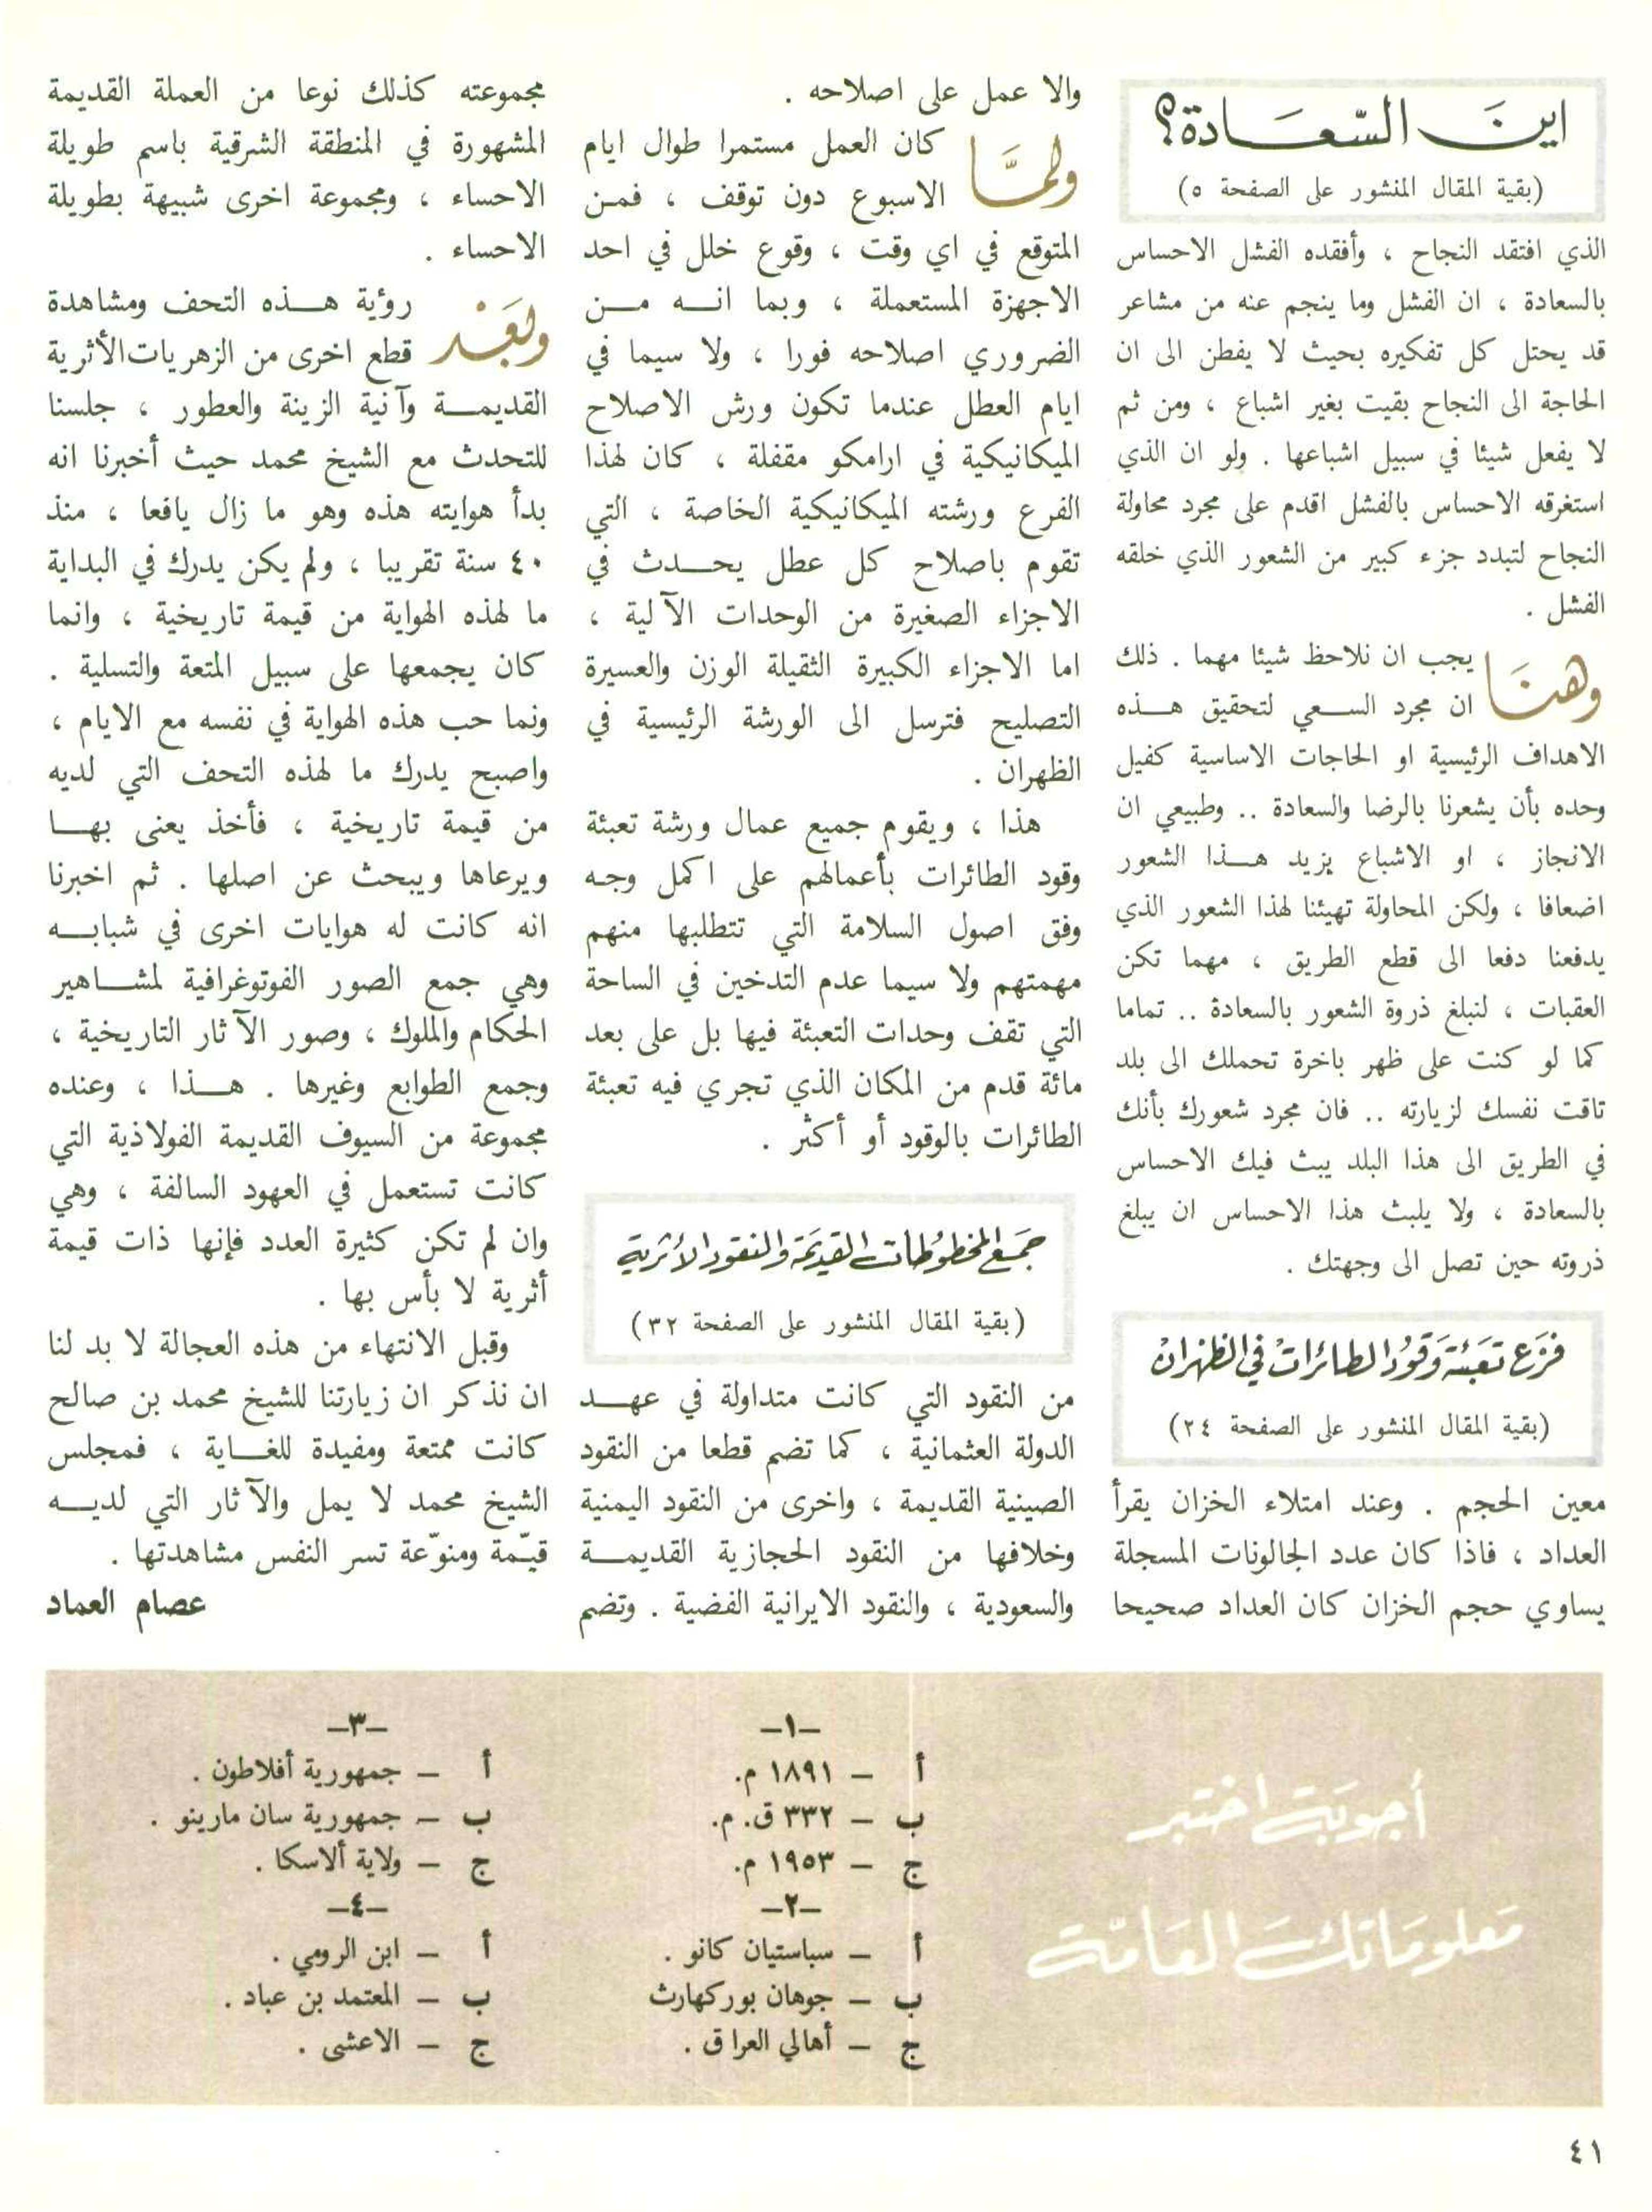 اين السّعادة؟
(بقية المقال المنشور على الصفحة ٥)
الذي افتقد النجاح ، وأفقده الفشل الاحساس
بالسعادة ، ان الفشل وما ينجم عنه من مشاعر
قد يحتل كل تفكيره بحيث لا يفطن الى ان
الحاجة الى النجاح بقيت بغير اشباع ، ومن ثم
لا يفعل شيئا في سبيل اشباعها . ولو ان الذي
استغرقه الاحساس بالفشل اقدم على مجرد محاولة
النجاح لتبدد جزء كبير من الشعور الذي خلقه
الفشل .
وهنَا يجب ان نلاحظ شيئا مهما . ذلك
ان مجرد السـعي لتحقيق هـــذه
الاهداف الرئيسية او الحاجات الاساسية كفيل
وحده بأن يشعرنا بالرضا والسعادة .. وطبيعي ان
الانجاز ، او الاشباع يزيد هــذا الشعور
اضعافا ، ولكن المحاولة تهيئنا لهذا الشعور الذي
يدفعنا دفعا الى قطع الطريق ، مهما تكن
العقبات ، لنبلغ ذروة الشعور بالسعادة .. تماما
كما لو كنت على ظهر باخرة تحملك الى بلد
تاقت نفسك لزيارته .. فان مجرد شعورك بأنك
في الطريق الى هذا البلد يبث فيك الاحساس
بالسعادة ، ولا يلبث هذا الاحساس ان يبلغ
ذروته حين تصل الى وجهتك .
فرَع تعَبئة وَقوُد الطائرات في الظهران
(بقية المقال المنشور على الصفحة ٢٤)
معين الحجم . وعند امتلاء الخزان يقرأ
العداد ، فاذا كان عدد الجالونات المسجلة
يساوي حجم الخزان كان العداد صحيحا
والا عمل على اصلاحه .
ولمَّا كان العمل مستمرا طوال ايام
الاسبوع دون توقف ، فمـن
المتوقع في اي وقت ، وقوع خلل في احد
الاجهزة المستعملة ، وبما انــه مــن
الضروري اصلاحه فورا ، ولا سيما في
ايام العطل عندما تكون ورش الاصلاح
الميكانيكية في ارامكو مقفلة ، كان لهذا
الفرع ورشته الميكانيكية الخاصة ، التي
تقوم باصلاح كل عطل يحــدث في
الاجزاء الصغيرة من الوحدات الآلية ،
اما الاجزاء الكبيرة الثقيلة الوزن والعسيرة
التصليح فترسل الى الورشة الرئيسية في
الظهران .
هذا ، ويقوم جميع عمال ورشة تعبئة
وقود الطائرات بأعمالهم على اكمل وجـه
وفق اصول السلامة التي تتطلبها منهم
مهمتهم ولا سيما عدم التدخين في الساحة
التي تقف وحدات التعبئة فيها بل على بعد
مائة قدم من المكان الذي تجري فيه تعبئة
الطائرات بالوقود أو أكثر .
جمَع المخطوُطات القديمَة والنقود الأثرية
(بقية المقال المنشور على الصفحة ٣٢)
من النقود التي كانت متداولة في عهــد
الدولة العثمانية ، كما تضم قطعا من النقود
الصينية القديمة ، واخرى من النقود اليمنية
وخلافها من النقود الحجازية القديمــة
والسعودية ، والنقود الايرانية الفضية . وتضم
مجموعته كذلك نوعا من العملة القديمة
المشهورة في المنطقة الشرقية باسم طويلة
الاحساء ، ومجموعة اخرى شبيهة بطويلة
الاحساء .
وبَعَدْ رؤية هــذه التحف ومشاهدة
قطع اخرى من الزهريات الأثرية
القديمــة وآنية الزينة والعطور ، جلسنا
للتحدث مع الشيخ محمد حيث أخبرنا انه
بدأ هوايته هذه وهو ما زال يافعا ، منذ
٤٠ سنة تقريبا ، ولم يكن يدرك في البداية
ما لهذه الهواية من قيمة تاريخية ، وانما
كان يجمعها على سبيل المتعة والتسلية .
ونما حب هذه الهواية في نفسه مع الايام ،
واصبح يدرك ما لهذه التحف التي لديه
من قيمة تاريخية ، فأخذ يعنى بهــا
ويرعاها ويبحث عن اصلها . ثم اخبرنا
انه كانت له هوايات اخرى في شبابــه
وهي جمع الصور الفوتوغرافية لمشــاهير
الحكام والملوك ، وصور الآثار التاريخية ،
وجمع الطوابع وغيرها . هــذا ، وعنده
مجموعة من السيوف القديمة الفولاذية التي
كانت تستعمل في العهود السالفة ، وهي
وان لم تكن كثيرة العدد فإنها ذات قيمة
أثرية لا بأس بها .
وقبل الانتهاء من هذه العجالة لا بد لنا
ان نذكر ان زيارتنا للشيخ محمد بن صالح
كانت ممتعة ومفيدة للغــاية ، فمجلس
الشيخ محمد لا يمل والآثار التي لديــه
قيّمة ومنوّعة تسر النفس مشاهدتها .
عصام العماد
أجوبَة اختبر
مَعلومَاتكَ العَامّة
–١–
أ – ١٨٩١ م.
ب – ٣٣٢ ق. م.
ج – ١٩٥٣ م.
–٢–
أ – سباستيان كانو .
ب – جوهان بوركهارث
ج – أهالي العراق .
–٣–
أ – جمهورية أفلاطون .
ب – جمهورية سان مارينو .
ج – ولاية ألاسكا .
–٤–
أ – ابن الرومي .
ب – المعتمد بن عباد .
ج – الاعشى .
٤١